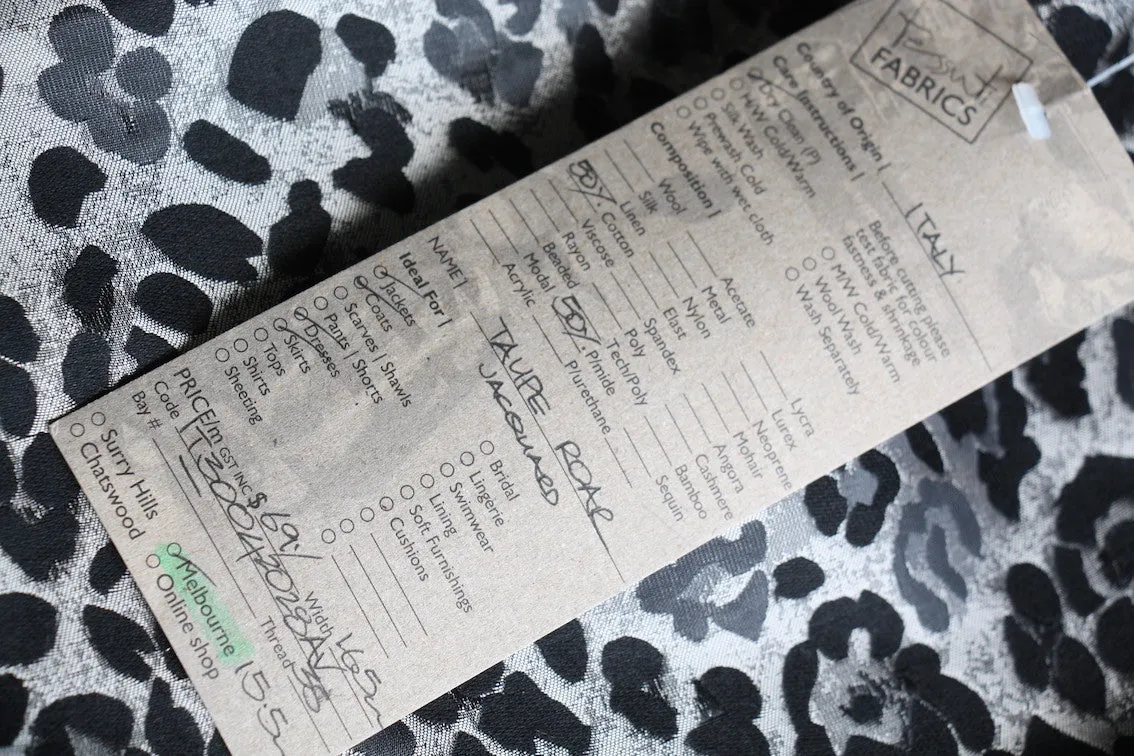 Tessuti
FABRICS
Country of Origin | ITALY
Care Instructions |
Dry Clean (P)
H/W Cold/Warm
Silk Wash
Prewash Cold
Wipe with wet cloth
Before cutting please
test fabric for colour
fastness & shrinkage
M/W Cold/Warm
Wool Wash
Wash Separately
Composition |
Wool
Silk
Linen
50% Cotton
Viscose
Rayon
Beaded
Modal
Acrylic
Acetate
Metal
Nylon
Elast
Spandex
Poly
Tech/Poly
50% P/mide
Plurethane
Lycra
Lurex
Neoprene
Mohair
Angora
Cashmere
Bamboo
Sequin
NAME | TAUPE ROAR
JACQUARD
Ideal For |
Jackets
Coats
Scarves | Shawls
Pants | Shorts
Dresses
Skirts
Tops
Shirts
Sheeting
Bridal
Lingerie
Swimwear
Lining
Soft Furnishings
Cushions
PRICE/m GST INC $ 69./ Width 1.465m
Code
Bay # Thread
Surry Hills
Chatswood
Melbourne 15.5m
Online shop